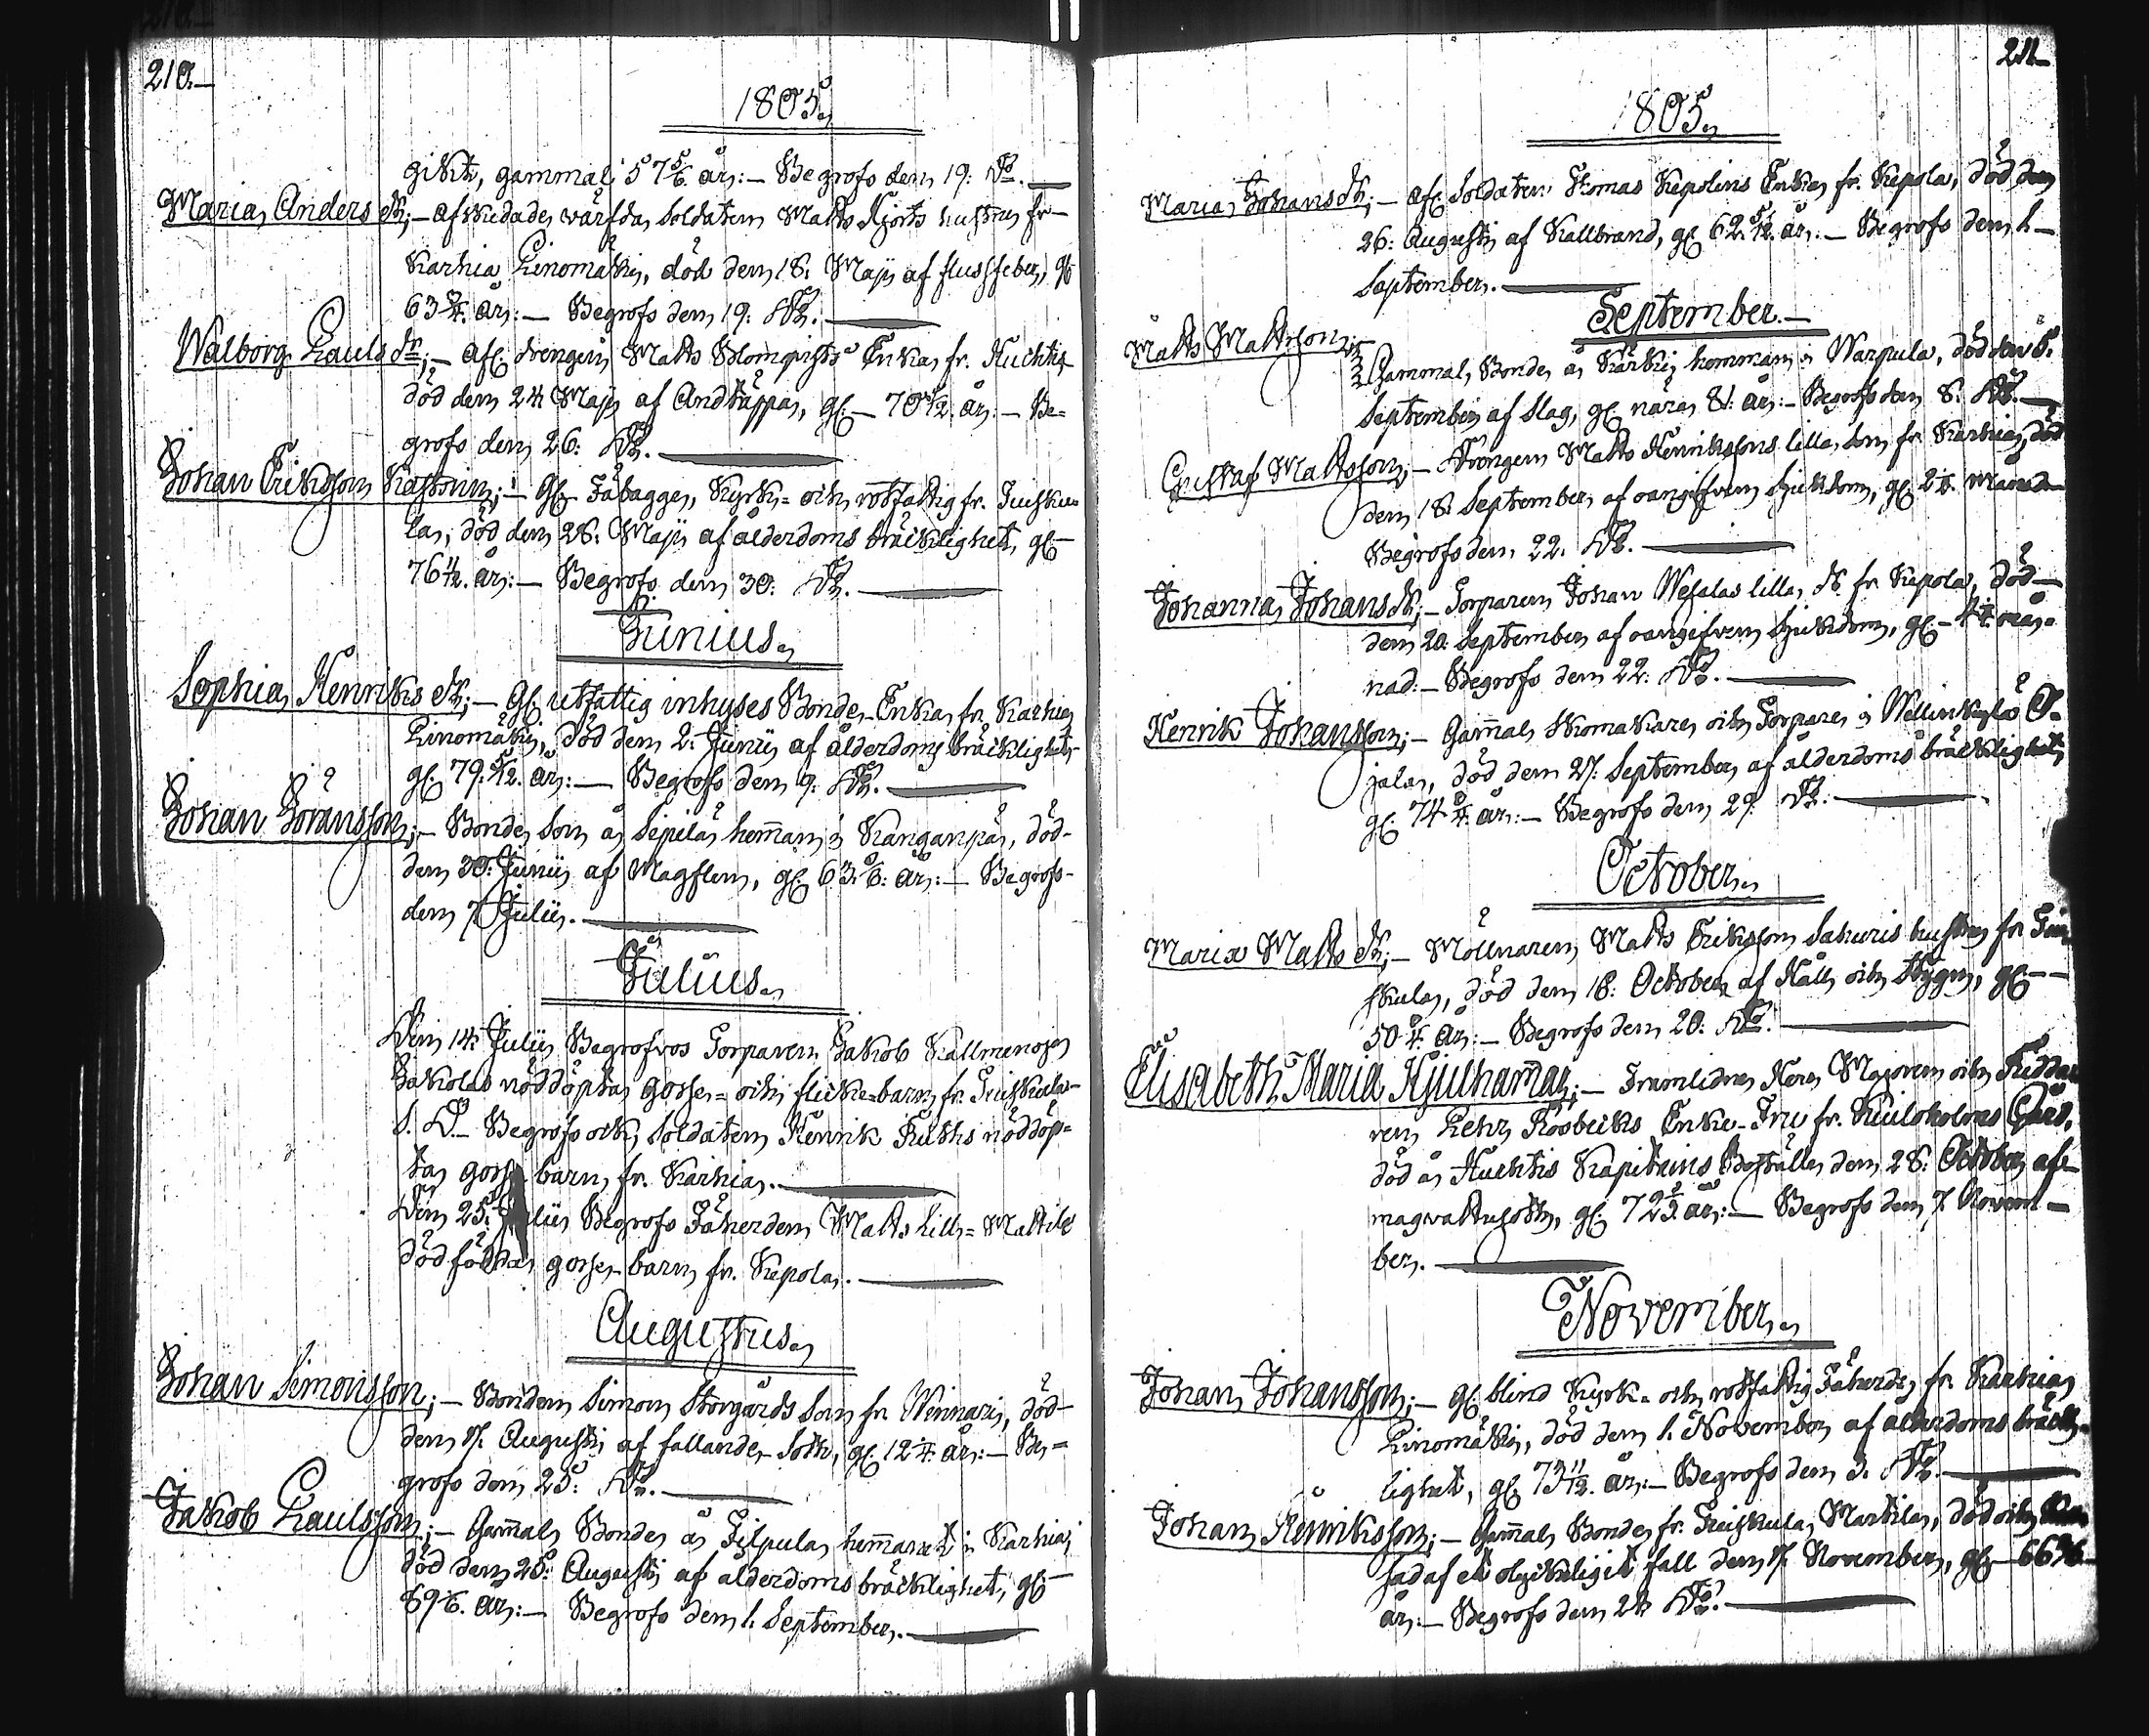 210.
1805.
gikt, gammal 57 5/6 år:— Begrofs den 19: Do.—
Maria Anders Dr;— afskedade wärfda Soldaten Matts Hjorts hustru fr.
Karhia Linomäki, död den 18. Maji af flussfeber, gl.
63 3/4. år:— Begrofs den 19: Do.—
Walborg Pauls Dr;— afl. drengen Matts Blomqvists Enka fr. Huchtis
död den 24 Maji af Andtäppa, gl.— 70 1/12. år.— Be=
grofs den 26: Do.—
Johan Eriksson Kastorin;— Gl. Fäbagge, Kyrk= och rotfattig fr. Juusku
la, död den 28. Maji af ålderdoms bräcklighet, gl.—
76 1/12. år:— Begrofs den 30: Do.—
Junius.
Sophia Henriks Dr;— Gl. utfattig inhyses Bonde-Enka fr. Karhia
Linomäki, död den 2. Junii af ålderdoms bräcklighet
gl. 79. 5/12. år:— Begrofs den 9. Do.—
Johan Göransson;— Bonde Son å Sipilä hemman i Kanganpää, död-
den 30: Junii af Magflen, gl. 63. 5/6: år:— Begrofs-
den 7 Julii.—
Julius.
Den 14: Julii Begrofvos Torparen Jakob Kallmenoja
Jakolas nöddöpta gosse= och flicke-barn fr. Juuskula
S. D.— Begrofs ock Soldaten Henrik Ruths nöddöp=
ta gosse barn fr. Karhia.—
Den 25: Julii Begrofs Fäherden Matts Lill= Mattils
dödfödda gosse-barn fr. Kepola.—
Augustus.
Johan Simonsson;— Bonden Simon Storgårds Son fr. Winnari, död-
den 17. Augusti af fallande-Sot, gl. 12 1/4. år:— Be=
grofs den 25: Do.—
Jakob Paulsson;— Gam̄al Bonde å Filpula hem̄anet i Karhia,
död den 25: Augusti af ålderdoms bräcklighet, gl.—
89 1/6. år:— Begrofs den 1. September.—
211.
1805.
Maria Johans Dr;— afl. Soldaten Thomas Kepolins Enka fr. Kepola, död den
26: Augusti af Kallbrand, gl. 62. 5/12. år:— Begrofs den 1—
September.—
September.—
Matts Mattsson;
Gammal Bonde å Kärki hemman i Warpula, död den 5.
September af Slag, gl. nära 81. år:— Begrofs den 8. Do.—
Gustaf Mattsson;— Drengen Matts Henrikssons lilla Son fr. Karhia, död
den 18. September af oangifven Sjukdom, gl. 2 månad—
Begrofs den 22. Do.—
Johanna Johans Dr;— Torparen Johan Wesalas lilla Dr fr. Kepola, död—
den 20. September af oangifven Sjukdom, gl.— 4 1/4. må=
nad:— Begrofs den 22: Do.—
Henrik Johansson;— Gam̄al Skomakare och Torpare i Wellinkylä O=
jala, död den 27. September af ålderdoms bräcklighet,
gl. 74 3/4. år:— Begrofs den 29: Do:—
October.
Maria Matts Dr;— Möllnaren Matts Eriksson Sahuris hustru fr. Juu
skula, död den 18: October af Håll och Stygn, gl.—
50 3/4. år:— Begrofs den 20: Do.—
Elisabeth Maria Hjulham̄ar;— Framlidne Herr Majoren och Ridda
ren Pehr Roobecks Enke-Fru fr. Kuuloholms Gård,
död å Huchtis Kapiteins Boställe den 28: October af
magvattusoth, gl. 72 2/3. år:— Begrofs den 7. Novem—
ber.—
November.
Johan Johansson;— gl. blind Kyrk= och rotfattig Fäherde fr. Karhia
Linomäki, död den 1. November af ålderdoms bräck
lighet, gl. 73 11/12. år:— Begrofs den 3. Do.—
Johan Henriksson;— Gam̄al Bonde fr. Juuskula Martila, död och
sad af et olyckligit fall den 17. November, gl.— 66 5/6
år:— Begrofs den 24 Do.—